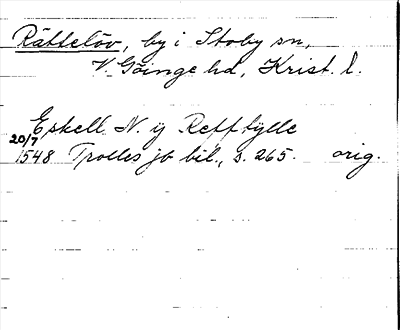 Rättelöv, by i Stoby sn,
V. Göinge hd, Krist. l.
Eskell N. ij Retflylle
20/7
1548 Trolles jb bil., s. 265. orig.